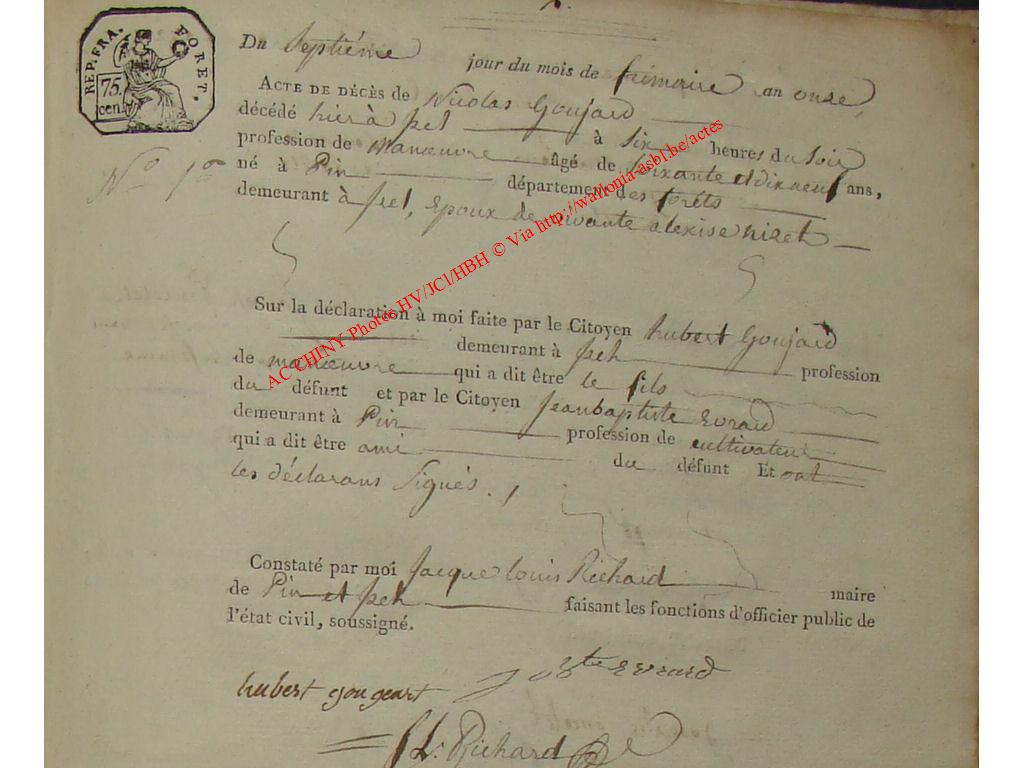 REP. FRA. FORET.
75. cen.
Du Septiéme jour du mois de frimaire an onze
ACTE DE DÉCÈS de Nicolas Goujard
décédé hier à jzel à six heures du Soir
profession de manœuvre âgé de soixante et dix neuf ans,
né à Pin département des forêts
demeurant à jzel, Epoux de vivante alexise nizet
N° 1er
Sur la déclaration à moi faite par le Citoyen hubert Goujard
demeurant à jzel profession
de manœuvre qui a dit être le fils
du défunt et par le Citoyen Jeanbaptiste Evrard
demeurant à Pin profession de cultivateur
qui a dit être ami du défunt Et ont
les déclarans Signés.
Constaté par moi Jacque louis Richard maire
de Pin et jzel faisant les fonctions d'officier public de
l'état civil, soussigné.
hubert gougeart J bte evrard
JL: Richard
AC CHINY Photos HV/JCl/HBH © Via http://wallonia-asbl.be/actes